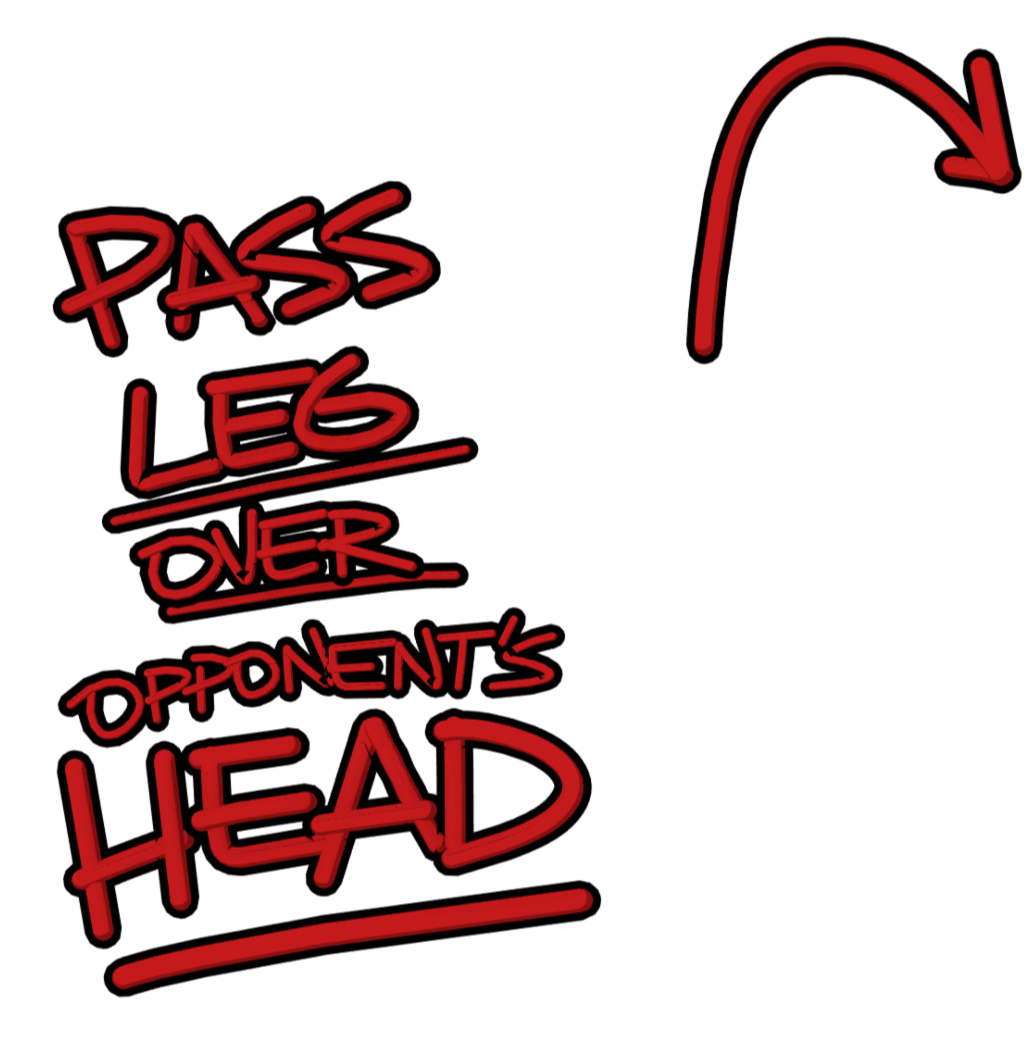 PASS
LEG
OVER
OPPONENT'S
HEAD